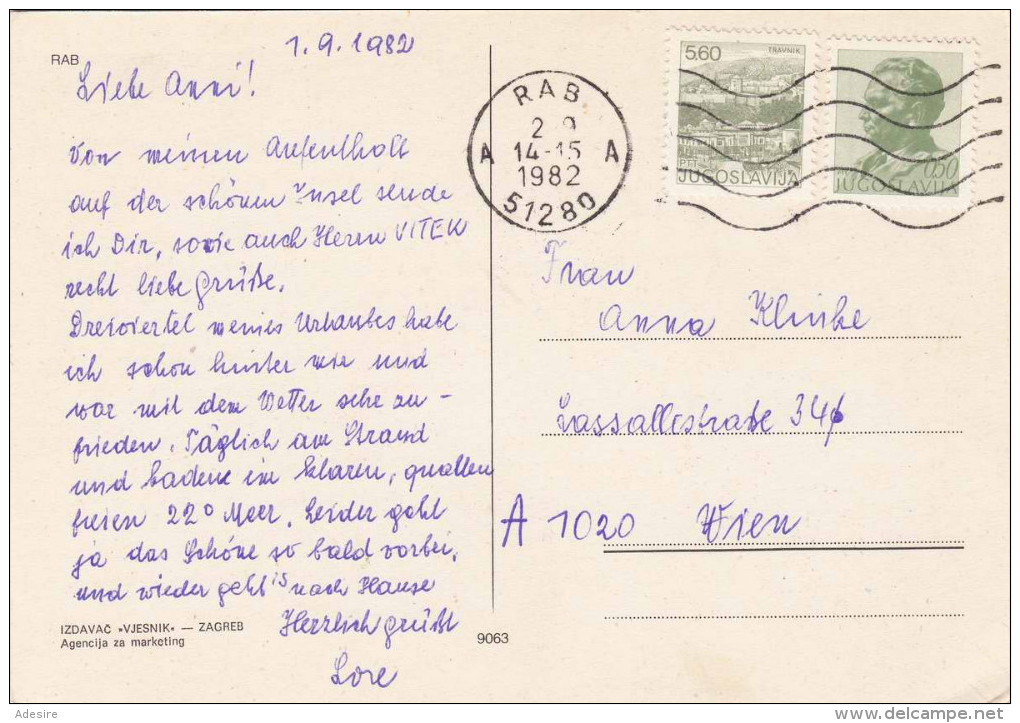 RAB
1.9.1982
Liebe Anni!
Von meinen Aufenthalt
auf der schönen Insel sende
ich Dir, sowie auch Herrn VITEK
recht liebe Grüße.
Dreiviertel meines Urlaubes habe
ich schon hinter mir und
war mit dem Wetter sehr zu-
frieden. Täglich am Strand
und baden im klaren, quallen
freien 22° Meer. Leider geht
ja das Schöne so bald vorbei,
und wieder geht's nach Hause
Herzlich grüßt
Lore
IZDAVAČ »VJESNIK« — ZAGREB
Agencija za marketing
9063
RAB
2 9
A 14-15 A
1982
51280
5.60 TRAVNIK
PTT
JUGOSLAVIJA
0.50
JUGOSLAVIJA
Frau
Anna Klinke
Lassallestraße
A 1020 Wien
Adesire
www.delcampe.net